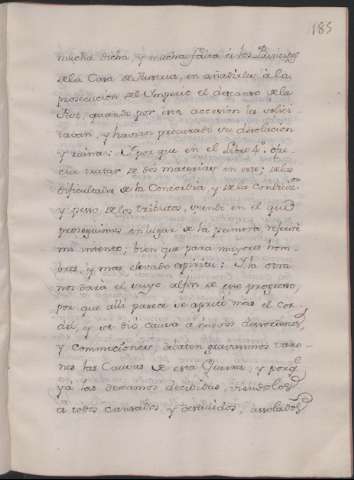 185
mucha dicha, y mucha falta á los Principes
de la Casa de Austria, en añadirles á la
prosecucion del Imperio el descanso de la
Paz, quando por otra accesion la solici-
tavan, y havian procurado su desolacion
y ruina: Y por que en el Libro 4º ofre-
cia tratar de dos materias en este; de las
dificultades de la Concordia y de la
y peso, de los tributos, siendo en el que
proseguimos en lugar de la primera referir
mi intento; bien que para mayores hom-
bres, y mas elevado espiritu: Y la otra
nos daria el suyo al fin de este progreso,
por que alli parece se apretó mas el Cor-
del, y se dió causa á mayores
y commociones, dexaron gravisimos varo-
nes las Causas de esta Guerra, y porqe
ya las dexamos decididas, viendolos
á todos cansados y destruidos, assolados